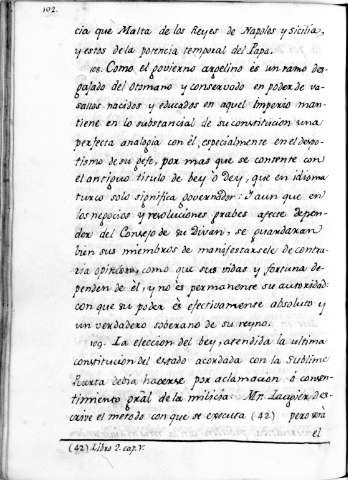 102.
cia que Malta de los Reyes de Napoles y sicilia,
y estos de la potencia temporal del Papa.
108. Como el govierno argelino es un ramo des-
gajado del Otomano y conservado en poder de va-
sallos nacidos y educados en aquel Imperio man-
tiene en lo substancial de su constitucion una
perfecta analogia con èl, especialmente en el despo-
tismo de su gefe, por mas que se contente con
el antiguo titulo de bey ò Dey, que en idioma
turco solo significa governador: Y aun que en
los negocios y revoluciones grabes afecte depen-
der del Consejo de su Divan, se guardaran
bien sus miembros de manifestarsele de contra-
ria opinion, como que sus vidas y fortuna de-
penden de èl, y no es permanente su autoridad:
con que su poder es efectivamente absoluto y
un verdadero soberano de su reyno.
109. La eleccion del bey, atendida la ultima
constitucion del estado acordada con la Sublime
Puerta debia hacerse por aclamacion ò consen-
timiento gral de la milicia: Mr. Laugier des-
crive el metodo con que se executa (42) pero
el
(42) Libro 2. cap. V.